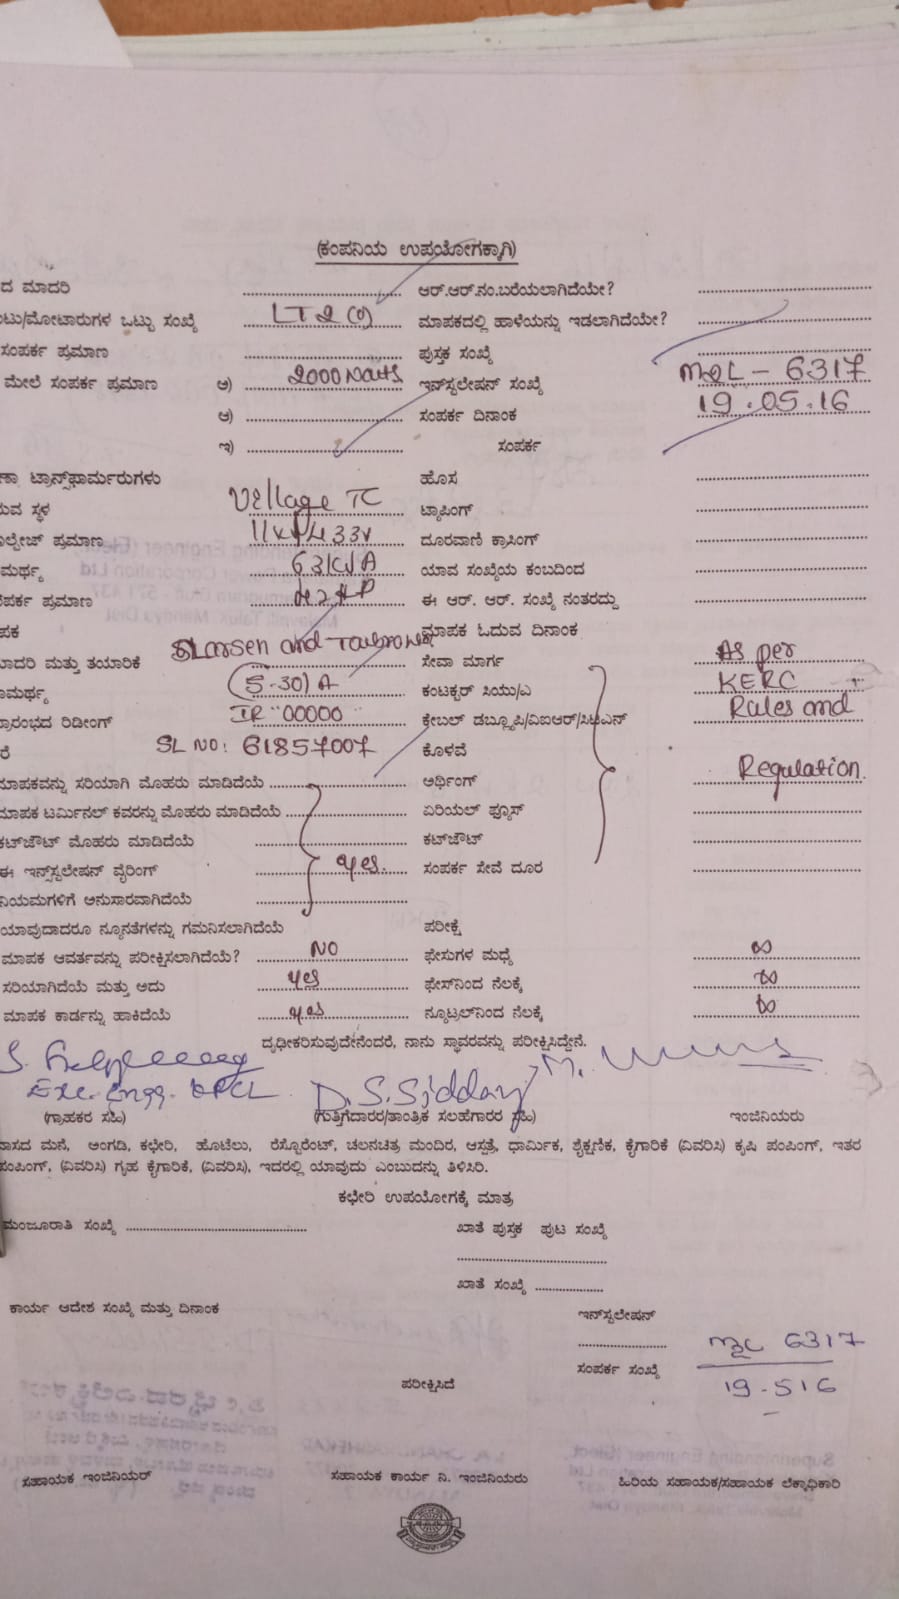 (ಕಂಪನಿಯ ಉಪಯೋಗಕ್ಕಾಗಿ)
ದ ಮಾದರಿ ಆರ್.ಆರ್.ನಂ.ಬರೆಯಲಾಗಿದೆಯೇ?
ಟು/ಮೋಟಾರುಗಳ ಒಟ್ಟು ಸಂಖ್ಯೆ LT2 ಮಾಪಕದಲ್ಲಿ ಹಾಳೆಯನ್ನು ಇಡಲಾಗಿದೆಯೇ?
ಸಂಪರ್ಕ ಪ್ರಮಾಣ ಪುಸ್ತಕ ಸಂಖ್ಯೆ
ಮೇಲೆ ಸಂಪರ್ಕ ಪ್ರಮಾಣ ಅ) 2000 Watts ಇನ್‌ಸ್ಟಲೇಷನ್ ಸಂಖ್ಯೆ 6317
ಆ) ಸಂಪರ್ಕ ದಿನಾಂಕ 19.05.16
ಇ) ಸಂಪರ್ಕ
ಟ್ರಾನ್ಸ್‌ಫಾರ್ಮರುಗಳು ಹೊಸ
ುವ ಸ್ಥಳ Village TC ಟ್ಯಾಪಿಂಗ್
ಲ್ಟೇಜ್ ಪ್ರಮಾಣ 11kv/433v ದೂರವಾಣಿ ಕ್ರಾಸಿಂಗ್
ಮರ್ಥ್ಯ 63KVA ಯಾವ ಸಂಖ್ಯೆಯ ಕಂಬದಿಂದ
ಪರ್ಕ ಪ್ರಮಾಣ ಈ ಆರ್. ಆರ್. ಸಂಖ್ಯೆ ನಂತರದ್ದು
ಪಕ ಮಾಪಕ ಓದುವ ದಿನಾಂಕ
ಾದರಿ ಮತ್ತು ತಯಾರಿಕೆ Larsen and ಸೇವಾ ಮಾರ್ಗ As per
ಾಮರ್ಥ್ಯ (5-30) A ಕಂಟಕ್ಟರ್ ಸಿಯು/ಎ KERC
್ರಾರಂಭದ ರಿಡೀಂಗ್ IR 00000 ಕ್ರೇಬಲ್ ಡಬ್ಲ್ಯೂಪಿ/ವಿಐಆರ್/ Rules and
ರೆ SL NO: 61857007 ಕೊಳವೆ
ಮಾಪಕವನ್ನು ಸರಿಯಾಗಿ ಮೊಹರು ಮಾಡಿದೆಯೆ ಅರ್ಥಿಂಗ್ Regulation
ಮಾಪಕ ಟರ್ಮಿನಲ್ ಕವರನ್ನು ಮೊಹರು ಮಾಡಿದೆಯೆ ಏರಿಯಲ್ ಫ್ಯೂಸ್
ಕಟ್‌ಔಟ್ ಮೊಹರು ಮಾಡಿದೆಯೆ ಕಟ್‌ಔಟ್
ಈ ಇನ್ಸ್‌ಸ್ಟಲೇಷನ್ ವೈರಿಂಗ್ yes. ಸಂಪರ್ಕ ಸೇವೆ ದೂರ
ನಿಯಮಗಳಿಗೆ ಅನುಸಾರವಾಗಿದೆಯೆ
ಯಾವುದಾದರೂ ನ್ಯೂನತೆಗಳನ್ನು ಗಮನಿಸಲಾಗಿದೆಯೆ ಪರೀಕ್ಷೆ
ಮಾಪಕ ಆವರ್ತವನ್ನು ಪರೀಕ್ಷಿಸಲಾಗಿದೆಯೆ? NO ಫೇಸುಗಳ ಮಧ್ಯೆ ∞
ಸರಿಯಾಗಿದೆಯೆ ಮತ್ತು ಅದು yes ಫೇಸ್‌ನಿಂದ ನೆಲಕ್ಕೆ ∞
ಮಾಪಕ ಕಾರ್ಡನ್ನು ಹಾಕಿದೆಯೆ yes ನ್ಯೂಟ್ರಲ್‌ನಿಂದ ನೆಲಕ್ಕೆ ∞
ದೃಢೀಕರಿಸುವುದೇನೆಂದರೆ, ನಾನು ಸ್ಥಾವರವನ್ನು ಪರೀಕ್ಷಿಸಿದ್ದೇನೆ.
Exe. Engg. D.S.Sidday
(ಗ್ರಾಹಕರ ಸಹಿ) (ಗುತ್ತಿಗೆದಾರರ/ತಾಂತ್ರಿಕ ಸಲಹೆಗಾರರ ಸಹಿ) ಇಂಜಿನಿಯರು
ವಾಸದ ಮನೆ, ಅಂಗಡಿ, ಕಛೇರಿ, ಹೊಟೆಲು, ರೆಸ್ಟೊರೆಂಟ್, ಚಲನಚಿತ್ರ ಮಂದಿರ, ಆಸ್ಪತ್ರೆ, ಧಾರ್ಮಿಕ, ಶೈಕ್ಷಣಿಕ, ಕೈಗಾರಿಕೆ (ವಿವರಿಸಿ) ಕೃಷಿ ಪಂಪಿಂಗ್, ಇತರ
ಪಂಪಿಂಗ್, (ವಿವರಿಸಿ) ಗೃಹ ಕೈಗಾರಿಕೆ, (ವಿವರಿಸಿ), ಇದರಲ್ಲಿ ಯಾವುದು ಎಂಬುದನ್ನು ತಿಳಿಸಿರಿ.
ಕಛೇರಿ ಉಪಯೋಗಕ್ಕೆ ಮಾತ್ರ
ಮಂಜೂರಾತಿ ಸಂಖ್ಯೆ ಖಾತೆ ಪುಸ್ತಕ ಪುಟ ಸಂಖ್ಯೆ
ಖಾತೆ ಸಂಖ್ಯೆ
ಕಾರ್ಯ ಆದೇಶ ಸಂಖ್ಯೆ ಮತ್ತು ದಿನಾಂಕ ಇನ್‌ಸ್ಟಲೇಷನ್
6317
ಸಂಪರ್ಕ ಸಂಖ್ಯೆ
ಪರೀಕ್ಷಿಸಿದೆ 19-516
ಸಹಾಯಕ ಇಂಜಿನಿಯರ್ ಸಹಾಯಕ ಕಾರ್ಯ ನಿ. ಇಂಜಿನಿಯರು ಹಿರಿಯ ಸಹಾಯಕ/ಸಹಾಯಕ ಲೆಕ್ಕಾಧಿಕಾರಿ